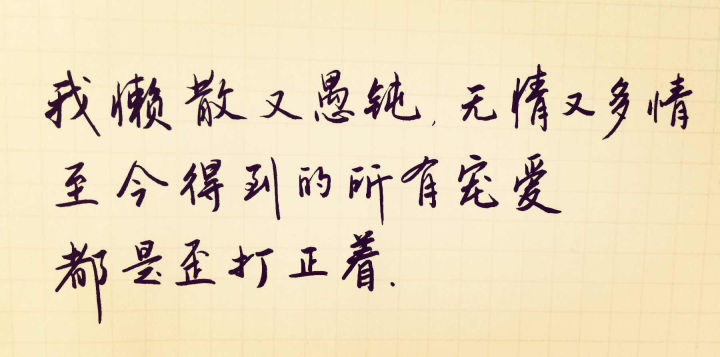 我懒散又愚钝,无情又多情
至今得到的所有宠爱
都是歪打正着.